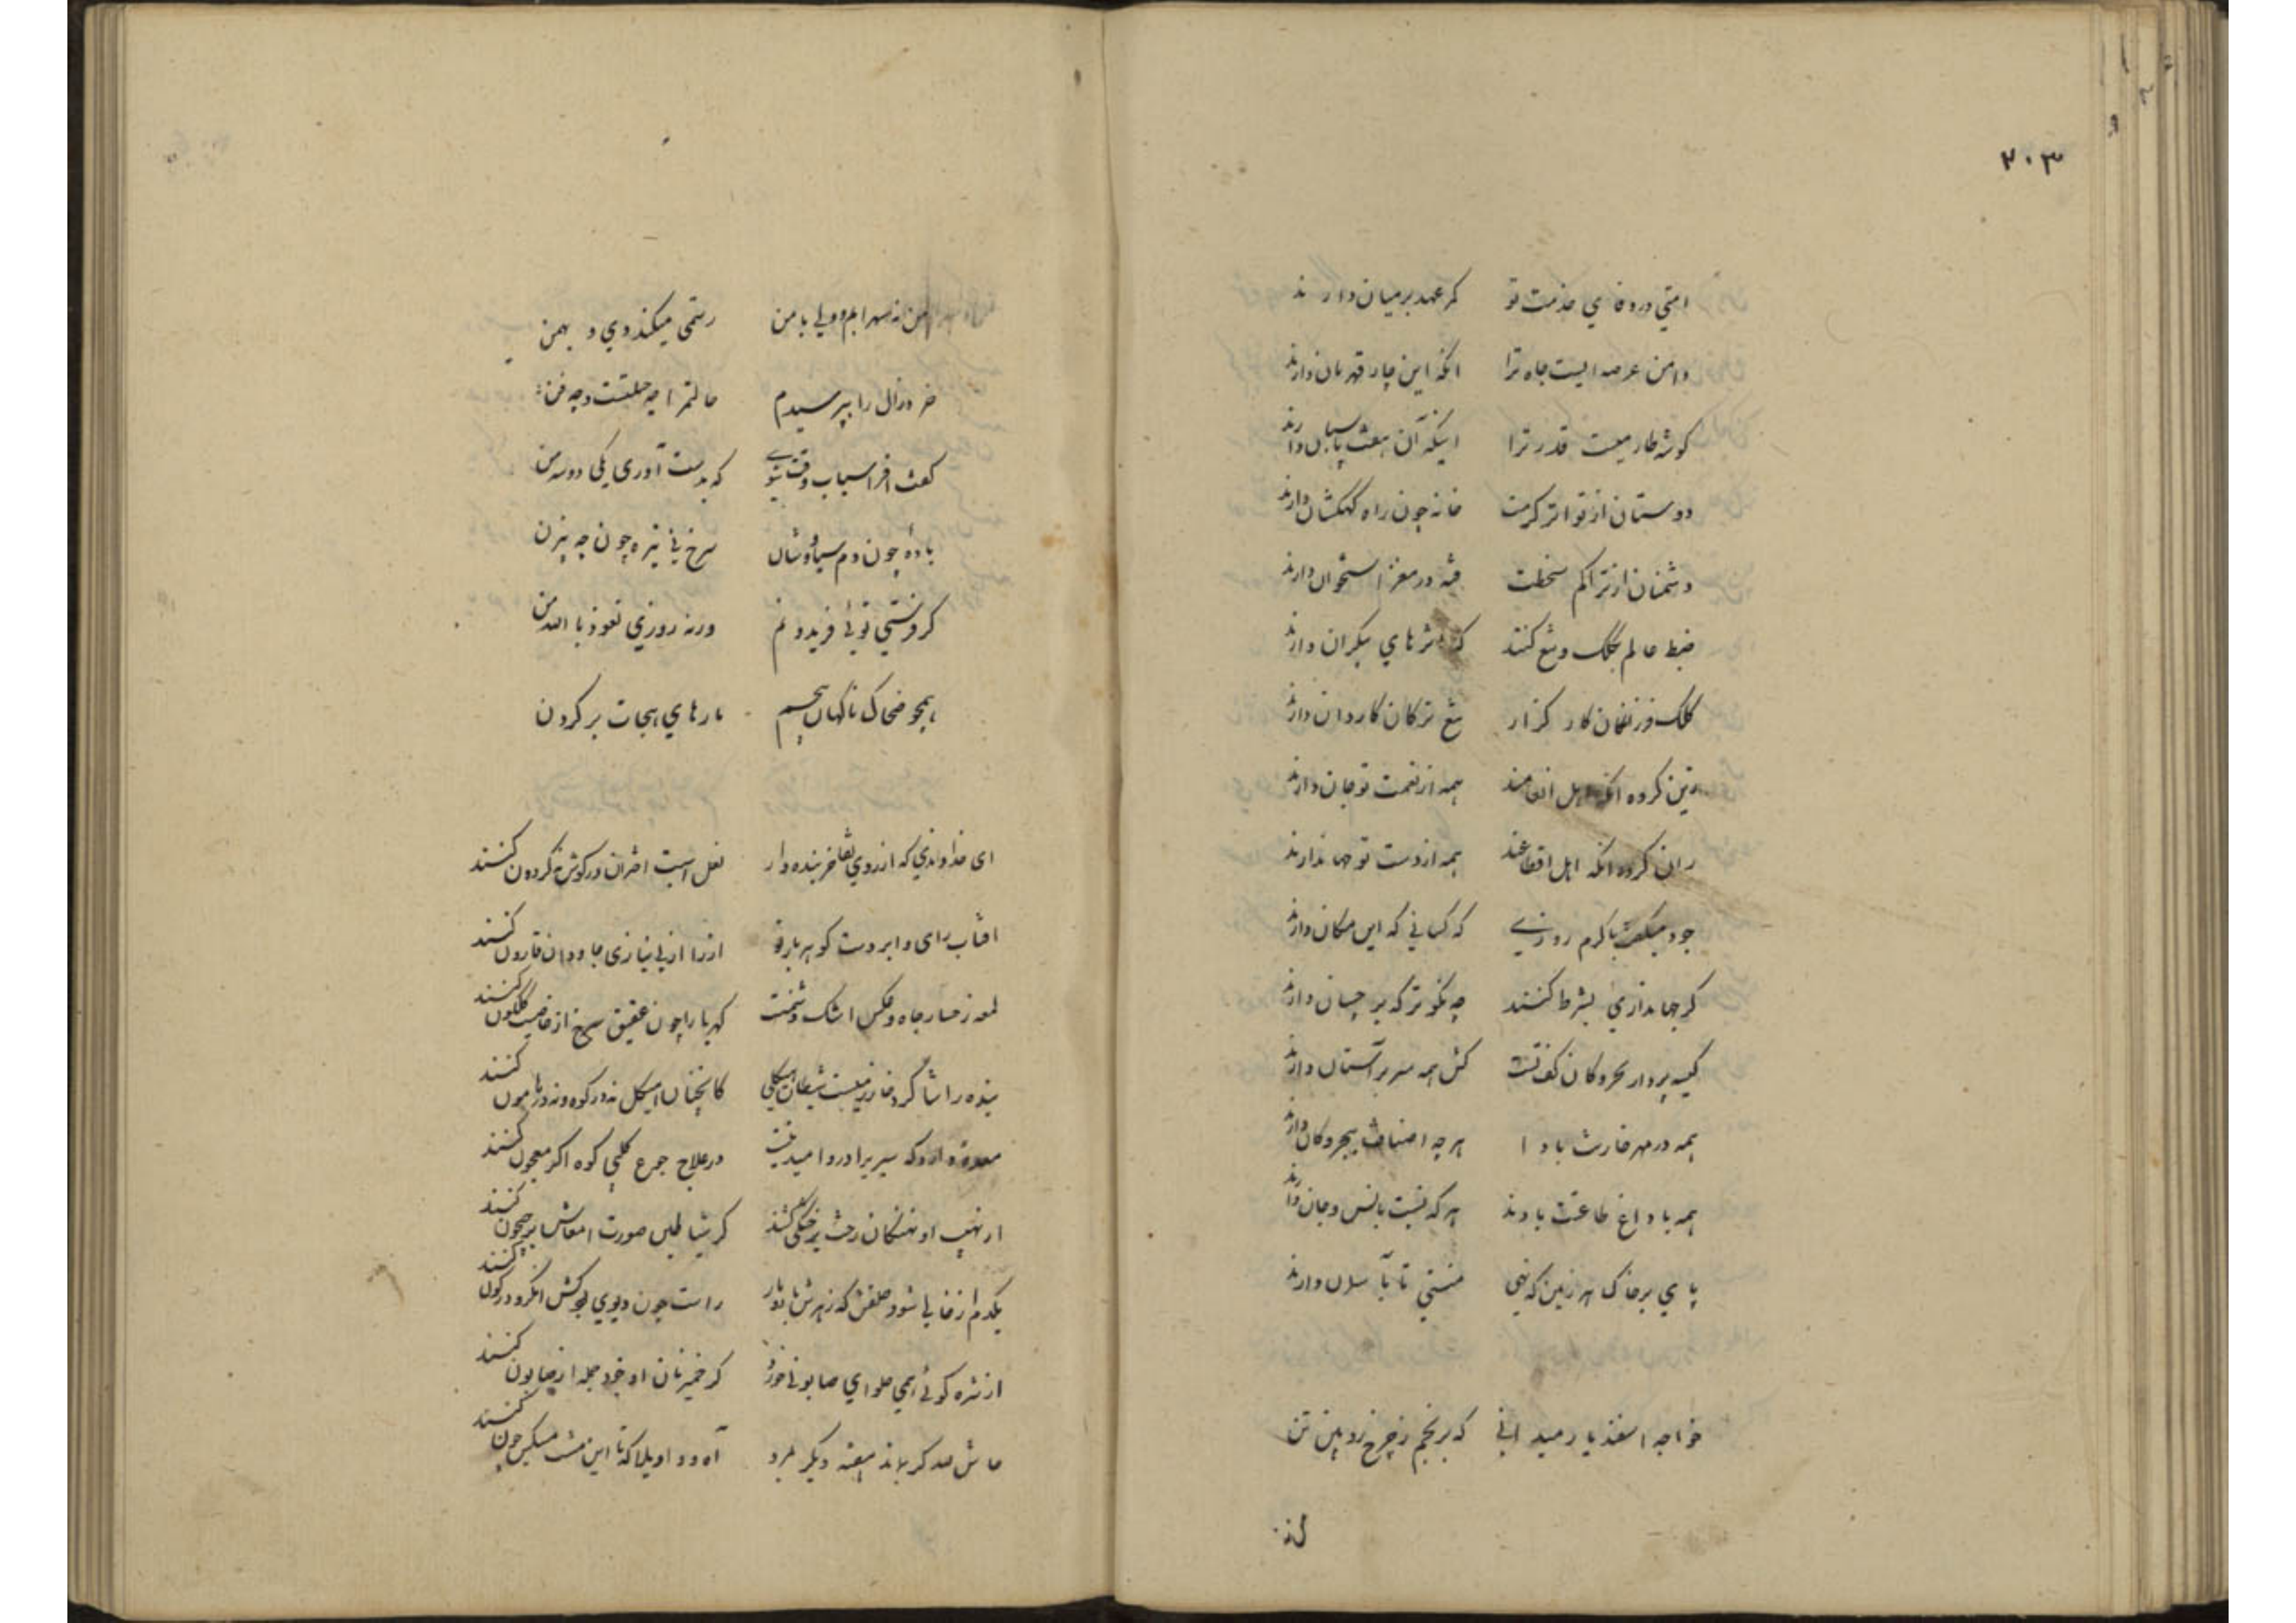 ۲۰۳
امتی در وفای خدمت تو کمر عهد بر میان دارند
دامن عرصه ایست جاه ترا انکه این چار قهرمان دارند
کوشه طارمیست قدر ترا اینکه آن هفت پاسبان دارند
دوستان از تواتر کرمت خانه چون راه کهکشان دارند
دشمنان از تراکم سخطت فتنه در مغز استخوان دارند
ضبط عالم بکلک و تیغ کنند که اثرهای بیکران دارند
کلک فرزانگان کار گزار تیغ ترکان کاردان دارند
زین کروه انکه اهل انعامند همه از نعمت تو جان دارند
زان کروه انکه اهل اقطاعند همه از دست تو جهاندارند
جود میکفت با کرم روزی که کسانی که این مکان دارند
کر جهانداری بشرط کنند چه نکوتر که بر چسان دارند
کیسه پرداز بحر و کان کف تست کش همه سر بر آستان دارند
همه در مهر خازنت بادا هر چه اصناف بحر و کان دارند
همه با داغ طاعتت بادند هر که نسبت بانس و جان دارند
پای بر خاک هر زمین که نهی منتی تا بآسمان دارند
خواجه اسفندیار میدانی که برنجم ز چرخ رویین تن
من نه سهرابم و ولی با من رستمی میکند وی و بهمن
خرد زال را بپرسیدم حالتم را چه حیلتست و چه فن
کفت افراسیاب وقت شوی که بدست آوری یکی دو سه من
باده چون دم سیاوشان سرخ نی تیره چون چه بیژن
کر فرستی توئی فریدونم ورنه روزی نعوذ بالله من
همچو ضحاک ناکهان پیچم مارهای هجات بر کردن
ای خداوندی که از روی تفاخر بنده وار نعل اسبت اختران در کوش کردون کنند
افتاب رای و ابر دست کوهر بار تو از را از بی نیازی جاودان قارون کنند
لمعه رخسار جاه و عکس اشک دشمنت کهربا را چون عقیق سرخ از خاصیت کلکون کنند
بنده را شاگرد خاز نیست شیطان هیکلی کانچنان هیکل نه در کوه و نه در هامون کنند
معده دارد که سیریرا در و امید نیست در علاج جوع کلبی کوه اکر معجون کنند
از نهیب او نهنکان رخت بر خشکی کشند کر شیاطین صورت امعاش بر جیحون کنند
یکدم از خایی شود حلقش که زهرش باد یار راست چون دیوی بود کش انکژد در کون کنند
از شره کوئی همی حلوای صابونی خورد کر خمیر نان او خود جمله از صابون کنند
حاش لله کر بماند هفته دیکر بمرد آه و واویلا که تا این مشت مسکین چون کنند